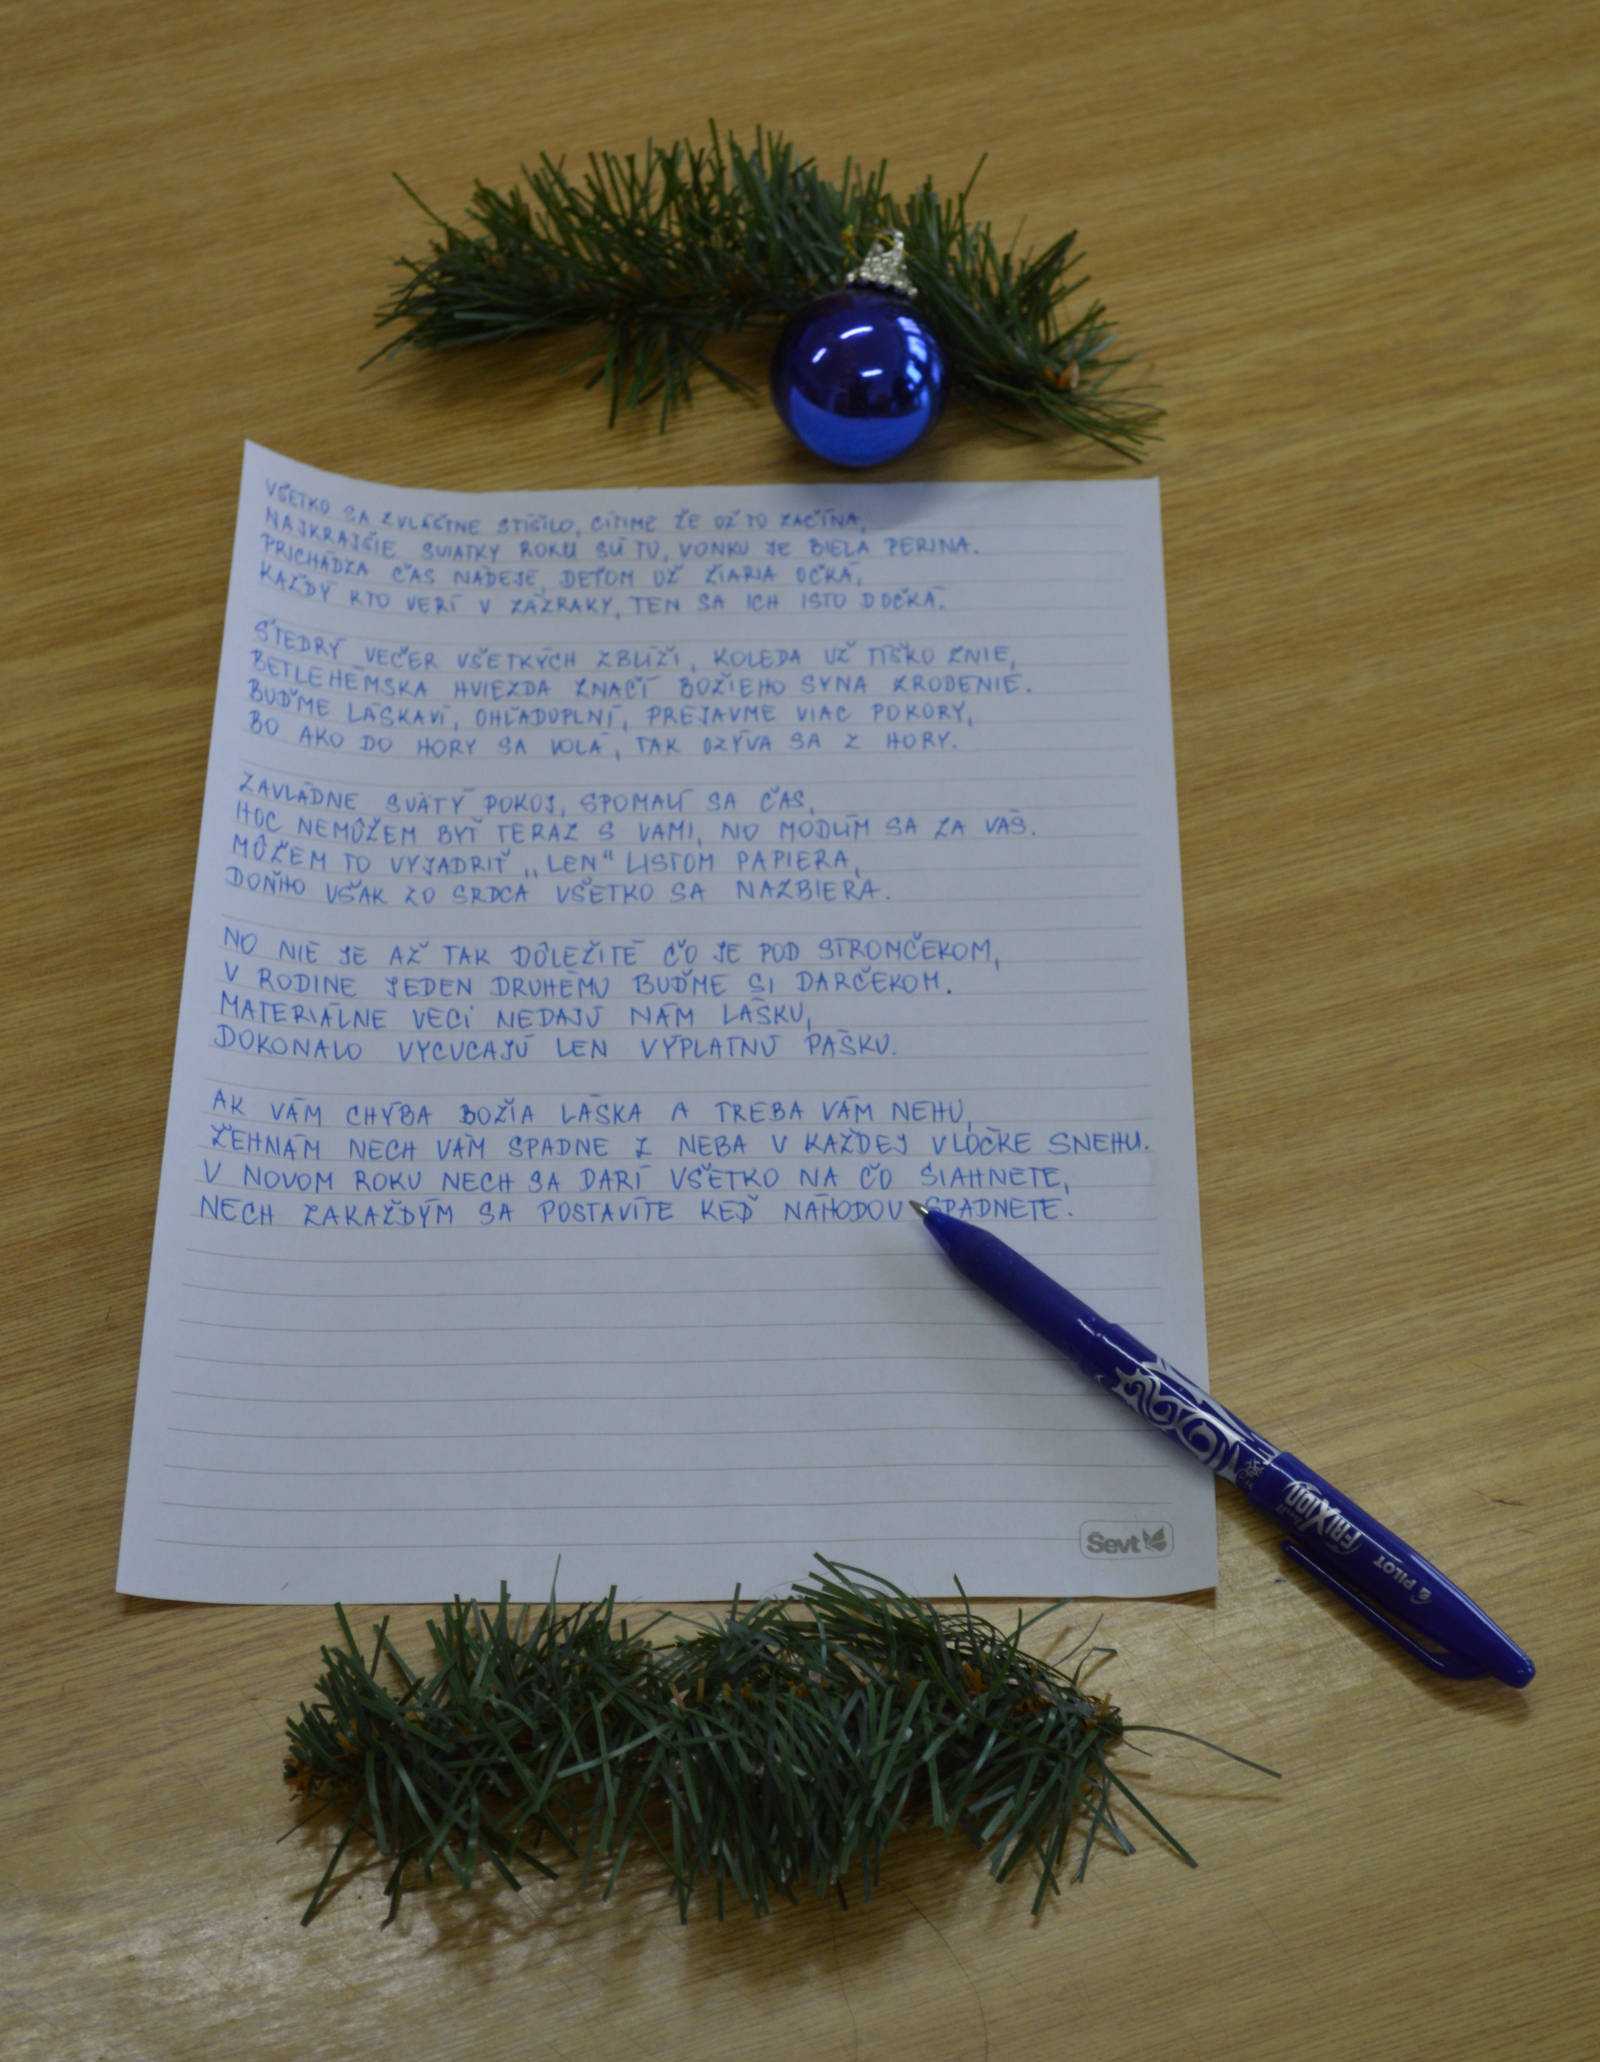 VŠETKO SA ZVLÁŠTNE STÍŠILO, CÍTIME ŽE UŽ TO ZAČÍNA,
NAJKRAJŠIE SVIATKY ROKU SÚ TU, VONKU JE BIELA PERINA.
PRICHÁDZA ČAS NÁDEJE, DEŤOM UŽ ŽIARIA OČKÁ,
KAŽDÝ KTO VERÍ V ZÁZRAKY, TEN SA ICH ISTO DOČKÁ.
ŠTEDRÝ VEČER VŠETKÝCH ZBLÍŽI, KOLEDA UŽ TÍŠKO ZNIE,
BETLEHÉMSKA HVIEZDA ZNAČÍ BOŽIEHO SYNA ZRODENIE.
BUĎME LÁSKAVÍ, OHĽADUPLNÍ, PREJAVME VIAC POKORY,
BO AKO DO HORY SA VOLÁ, TAK OZÝVA SA Z HORY.
ZAVLÁDNE SVÄTÝ POKOJ, SPOMALÍ SA ČAS,
HOC NEMÔŽEM BYŤ TERAZ S VAMI, NO MODLÍM SA ZA VÁS.
MÔŽEM TO VYJADRIŤ „LEN“ LISTOM PAPIERA,
DOŇHO VŠAK ZO SRDCA VŠETKO SA NAZBIERA.
NO NIE JE AŽ TAK DÔLEŽITÉ ČO JE POD STROMČEKOM,
V RODINE JEDEN DRUHÉMU BUĎME SI DARČEKOM.
MATERIÁLNE VECI NEDAJÚ NÁM LÁSKU,
DOKONALO VYCUCAJÚ LEN VÝPLATNÚ PÁSKU.
AK VÁM CHÝBA BOŽIA LÁSKA A TREBA VÁM NEHU,
ŽEHNÁM NECH VÁM SPADNE Z NEBA V KAŽDEJ VLOČKE SNEHU.
V NOVOM ROKU NECH SA DARÍ VŠETKO NA ČO SIAHNETE,
NECH ZAKAŽDÝM SA POSTAVÍTE KEĎ NÁHODOU SPADNETE.
Sevt
FRIXION
PILOT